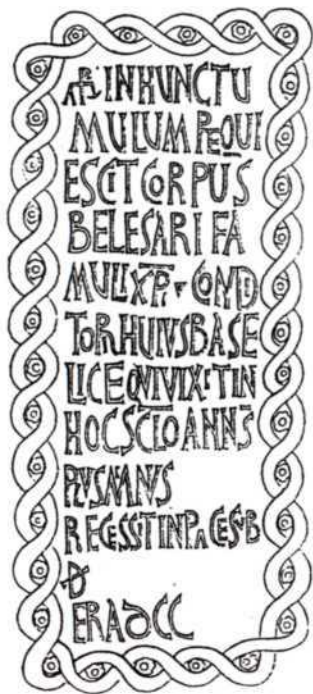 INHUNCTU
MULUMREQUI
ESCITCORPUS
BELESARIFA
MULIXPI CONDI
TORHUIUSBASE
LICEQVIVIXITIN
HOCSCLOANNS
PLVSMINVS
RECESSITINPACESVB
D
ERADCC